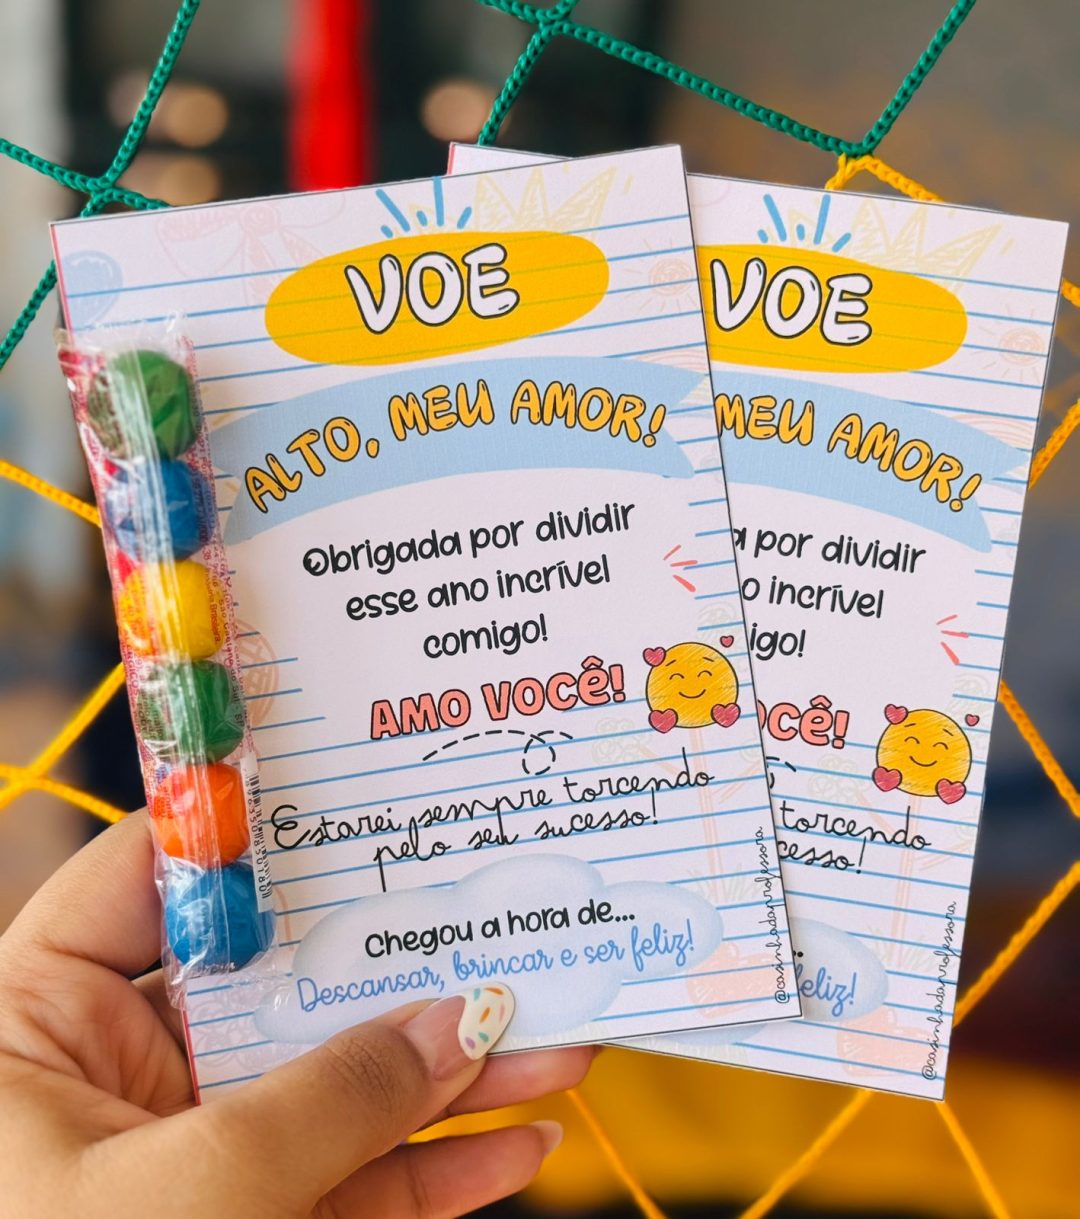 VOE
ALTO, MEU AMOR!
Obrigada por dividir
esse ano incrível
comigo!
AMO VOCÊ!
Estarei sempre torcendo
pelo seu sucesso!
Chegou a hora de...
Descansar, brincar e ser feliz!
@casinhadaprofessora
VOE
MEU AMOR!
a por dividir
o incrível
igo!
OCÊ!
torcendo
cesso!
...
feliz!
@casinhadaprofessora